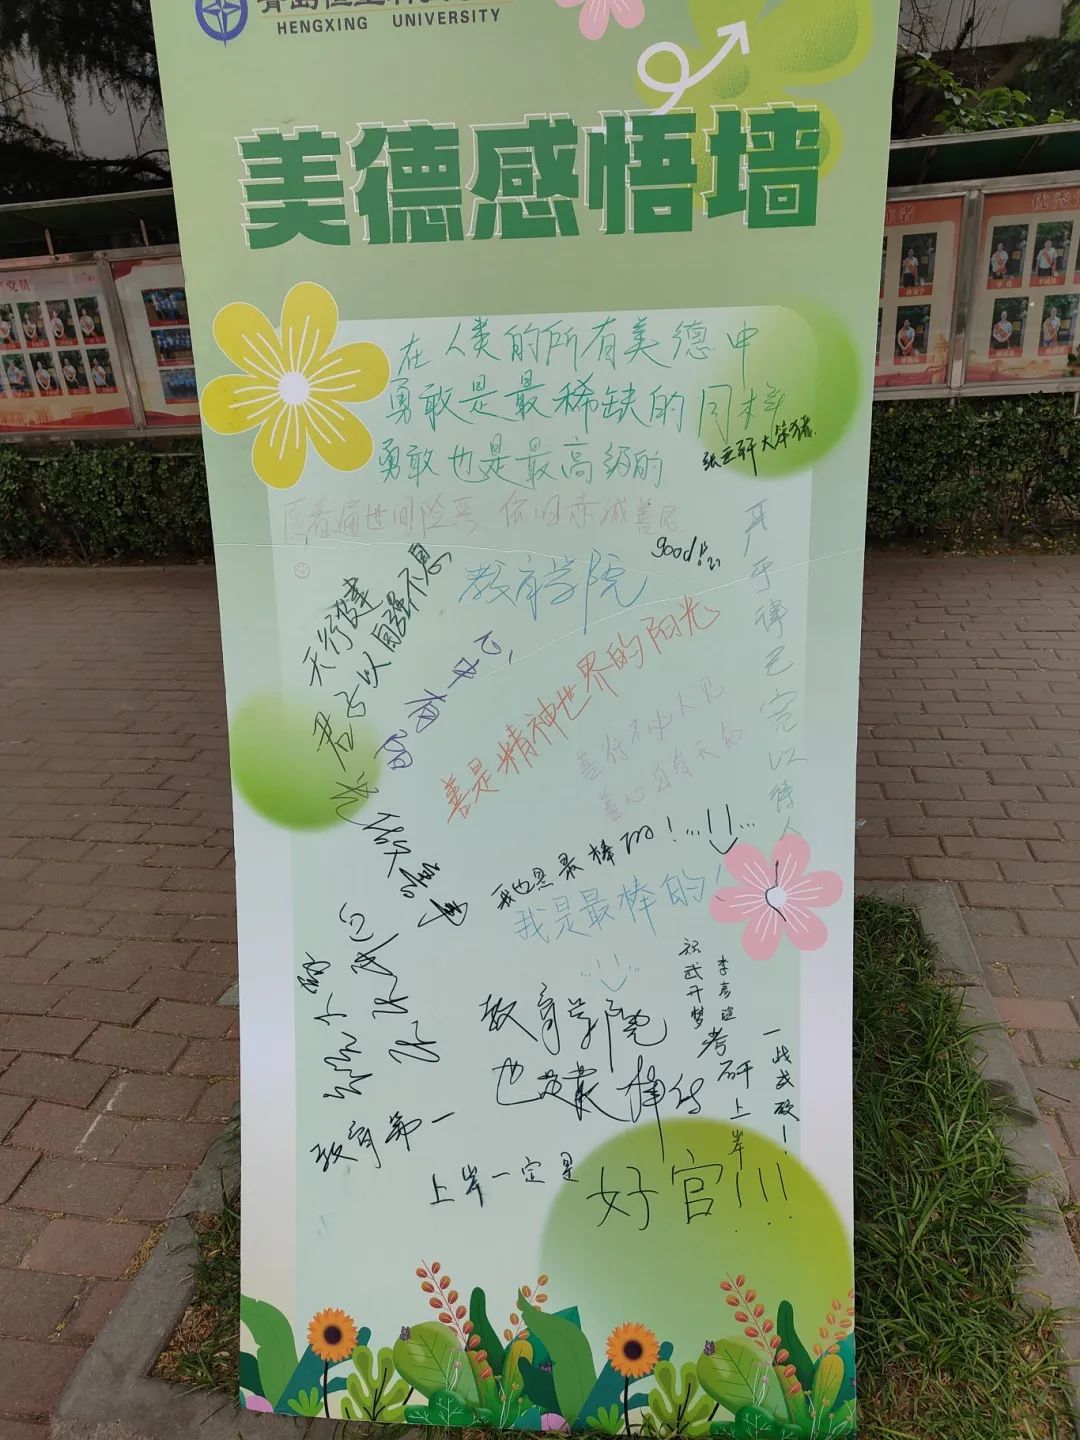 HENGXING UNIVERSITY
美德感悟墙
在人类的所有美德中
勇敢是最稀缺的同样
勇敢也是最高级的
张立轩大笨猪.
愿看遍世间险恶、依旧赤诚善良
good!
教育学院
严于律己宽以待人
天行健
君子以自强不息
心中有
善是精神世界的阳光
善行不必人见
善心自有天知
我也是最棒的！
我是最棒的！
教育学院
也是最棒的
祝武开梦
李彦
考研上岸
一战成功！
教育第一
上岸一定是
好官!!!